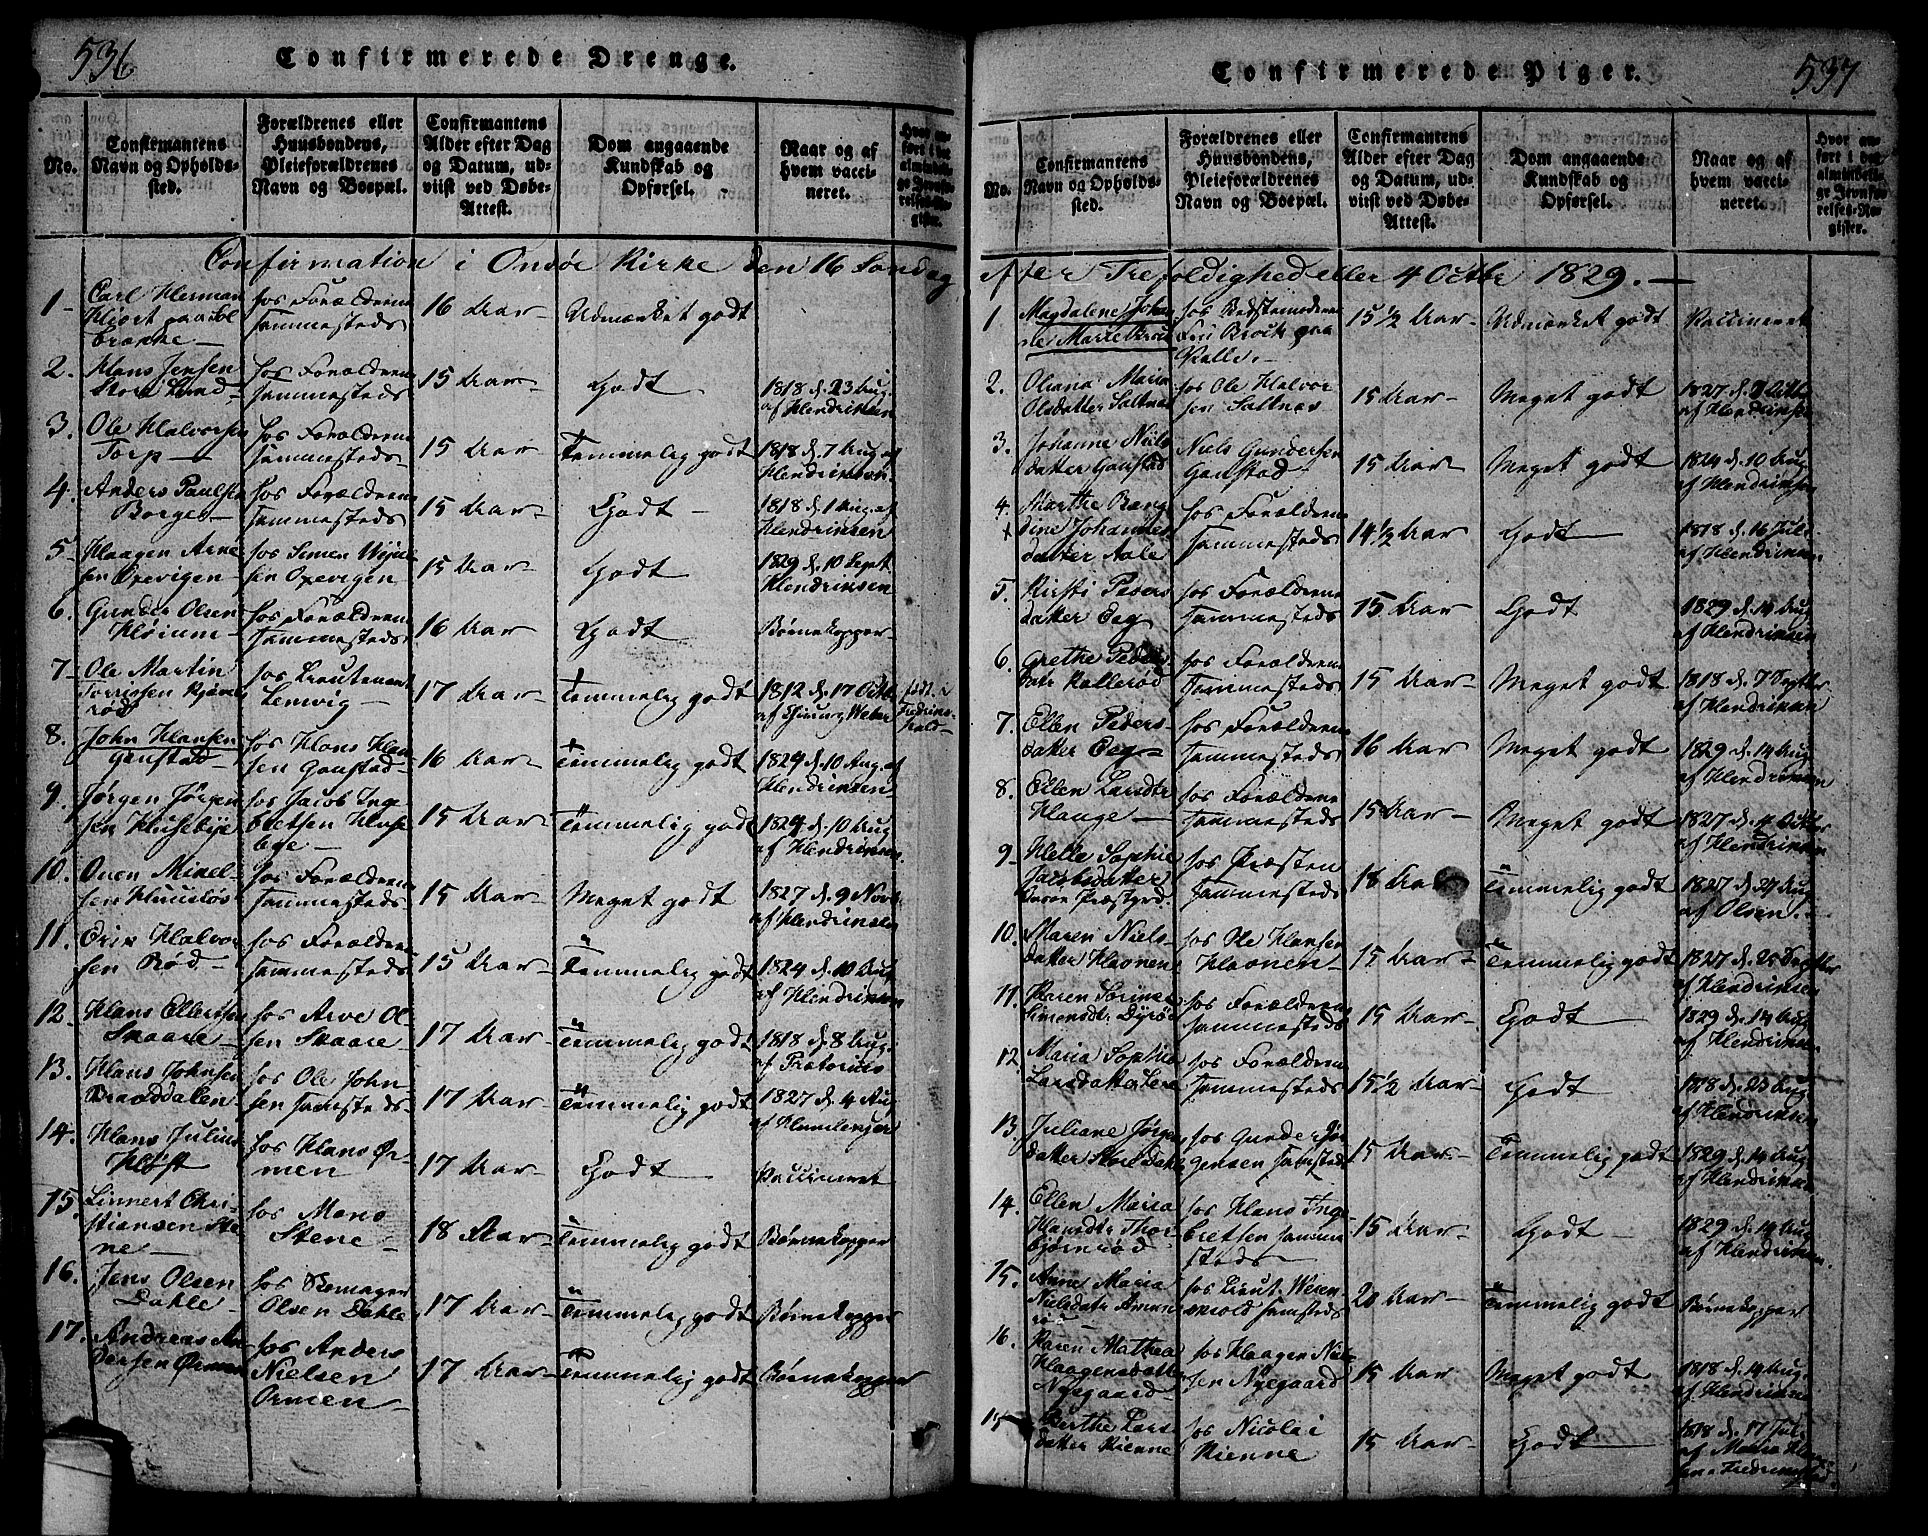 536
Confirmerede Drenge.
No.
Confirmantens
Navn og Opholds-
sted.
Forældrenes eller
Huusbondens,
Pleieforældrenes
Navn og Boepæl.
Confirmantens
Alder efter Dag
og Datum, ud-
viist ved Døbe-
Attest.
Dom angaaende
Kundskab og
Opførsel.
Naar og af
hvem vacci-
neret.
Confirmation i Onsøe Kirke den 16 Søndag
1 Carl Herman
Hiort
hos Forældrene
sammesteds
16 Aar
Udmærket godt
2. Hans Jensen
hos Forældrene
sammesteds
15 Aar
Godt
1818 d. 23 Aug.
af Hendriksen
3. Ole Halvorsen
Torp
hos Forældrene
sammesteds
15 Aar
Temmelig godt
1818 d. 7 Aug. af
Hendriksen
4. Anders Paulsen
Borge
hos Forældrene
sammesteds
15 Aar
Godt
1818 d. 1 Aug. af
Hendriksen
5. Haagen Arne
sen Oxevigen
hos Simen
sen Oxevigen
15 Aar
Godt
1829 d. 10 Sept
Hendriksen
6. Gunder Olsen
hos Forældrene
sammesteds
16 Aar
Godt
Børnekopper
7 Ole Martin
rød
hos Lieutenant
Lemvig
17 Aar
Temmelig godt
1812 d. 17 Octbr
født i
Fredriks-
hald
8. John Hansen
Gaustad
hos Hans Han
sen Gaustad
16 Aar
Temmelig godt
1824 d. 10 Aug. af
Hendriksen
9. Jørgen Jørgen
sen Husebye
hos Jacob Inge
bretsen Huse
bye
15 Aar
Temmelig godt
1824 d. 10 Aug
af Hendriksen
10. Ouen Mikel-
sen
hos Forældrene
sammesteds
15 Aar
Meget godt
1827 d. 9 Novbr
af Hendriksen
11. Erik Halvor
sen Rød
hos Forældrene
sammesteds
15 Aar
Temmelig godt
1824 d. 10 Aug
af Hendriksen
12 Hans Ellertsen
Skaare
hos Arve Ol-
sen Skaare
17 Aar
Temmelig godt
1818 d. 8 Aug.
af Pratorius
13. Hans Johnsen
hos Ole John
sen samsteds
17 Aar
Temmelig godt
1827 d. 4 Aug
14. Hans Julius
hos Hans Ør-
men
17 Aar
Godt
Vaccineret
15. Linnert Chri-
stiansen Ste
ne
hos Mons
Stene
18 Aar
Temmelig godt
Børnekopper
16. Jens Olsen
Dahle
hos
Olsen Dahle
17 Aar
Temmelig godt
Børnekopper
17. Andreas An
dersen Ørmen
hos Anders
Nielsen
Ørmen
17 Aar
Temmelig godt
Børnekopper
537
Confirmerede Piger.
No.
Confirmantens
Navn og Opholds-
sted.
Forældrenes eller
Huusbondens,
Pleieforældrenes
Navn og Boepæl.
Confirmantens
Alder efter Dag
og Datum, ud-
viist ved Døbe-
Attest.
Dom angaaende
Kundskab og
Opførsel.
Naar og af
hvem vacci-
neret.
Hvor an-
ført i det
almindeli-
ge Jevnfø-
relses-Re-
gister.
after Trefoldighed eller 4 Octbr 1829.
1 Magdalene Johan
ne Marie Brock
hos Bedstemoderen
Fru Brock paa
15 1/2 Aar
Udmærket godt
Vaccineret
2. Oliana Maria
Olsdatter Saltnes
hos Ole Halvor
sen Saltnes
15 Aar
Meget godt
af Hendriksen
3. Johanne Niels
datter Gaustad
Niels Gundersen
Gaustad
15 Aar
Meget godt
1824 d. 10 Aug
af Hendriksen
4 Marthe Bang
dine Johannes
datter Aale
hos Forældrene
sammesteds
14 1/2 Aar
Godt
1818 d. 16 Juli
af Hendriksen
5. Kirsti Peders
datter Eeg
hos Forældrene
sammesteds
15 Aar
Godt
1829 d. 14 Aug
af Hendriksen
6. Grethe Peders
datr Kallerød
hos Forældrene
sammesteds
15 Aar
Meget godt
1818 d. 7 Septbr
af Hendriksen
7. Ellen Peders-
datter Eeg
hos Forældrene
sammesteds
16 Aar
Meget godt
1829 d. 14 Aug
af Hendriksen
8. Ellen Larsdtr
Hauge
hos Forældrene
sammesteds
15 Aar
Meget godt
1827 d. 4 Octbr
af Hendriksen
9 Helle Sophie
Jacobsdatter
Onsøe Præstgrd.
hos Præsten
sammesteds
18 Aar
Temmelig godt
1827 d. 27 Aug
af Olsen.
10. Maren Niels-
datter Haonen
hos Ole Hansen
Haonen
15 Aar
Temmelig godt
1827 d. 25 Septbr
af Hendriksen
11. Karen Sorine
Simensdtr Dyrød
hos Forældrene
sammesteds
15 Aar
Godt
1829 d. 14 Aug
af Hendriksen
12 Maria Sophia
Larsdatter Lere
hos Forældrene
sammesteds
15 1/2 Aar
Godt
1818 d. 23 Aug.
af Hendriksen
13. Juliane Jørgens
datter Store Dahle
hos Gunder Jør
gensen samsteds
15 Aar
Temmelig godt
1829 d. 14 Aug.
af Hendriksen
14. Ellen Maria
Hansdtr Thor
bjørnrød
hos Hans Inge
bretsen samme
steds
15 Aar
Godt
1829 d. 14 Aug
af Hendriksen.
15. Anne Maria
Nielsdatr
hos Lieut.
samsteds
20 Aar
Temmelig godt
Børnekopper
16. Karen Mathea
Haagensdatter
Nygaard
hos Haagen Niel
sen Nyegaard
15 Aar
Meget godt
1818 d. 14 Aug.
af Hendriksen
Berthe Lars
datter Kienne
hos Nicolai
Kienne
15 Aar
Godt
1818 d. 17 Juli
af Maria Han
sen i Fredrikstad